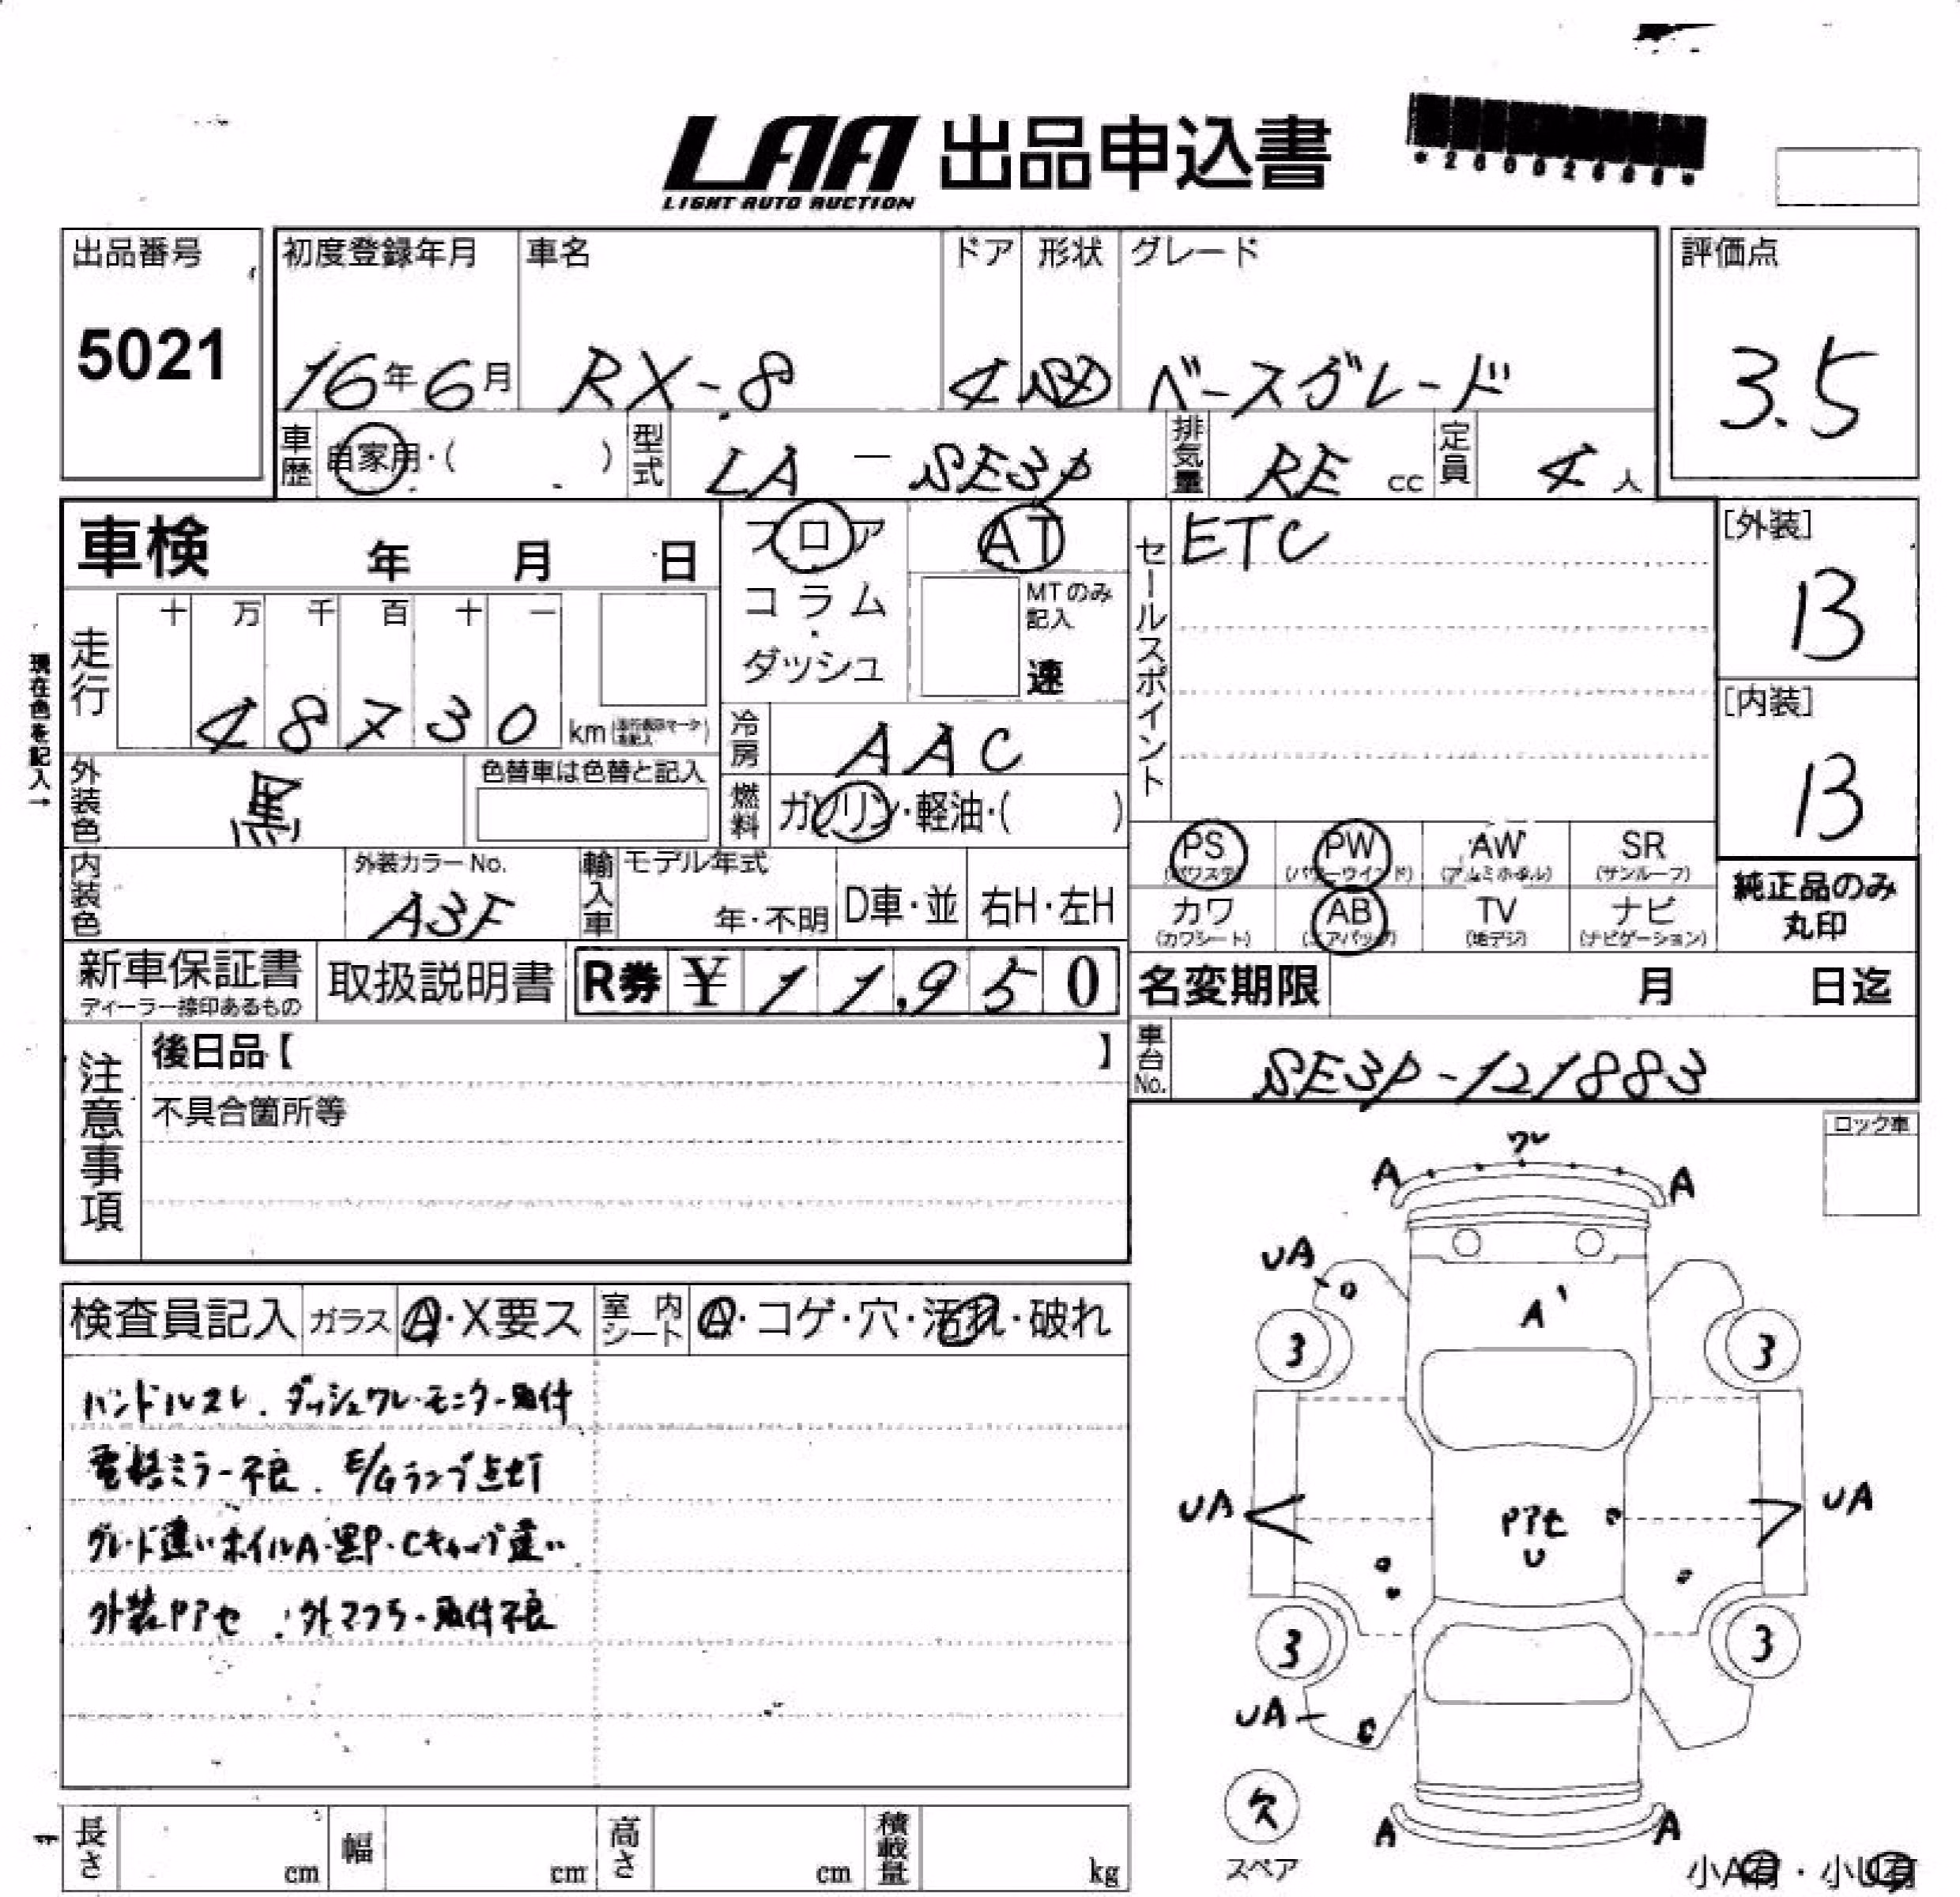 LAA 出品申込書
LIGHT AUTO AUCTION
出品番号
5021
初度登録年月
16年6月
車名
RX-8
ドア
4
形状
SD
グレード
ベースグレード
評価点
3.5
車歴
自家用・( )
型式
LA - SE3P
排気量
RE cc
定員
4 人
車検 年 月 日
フロア
コラム
・
ダッシュ
AT
MTのみ
記入
速
セールスポイント
ETC
[外装]
B
[内装]
B
現在色を記入→
走行
十 万 千 百 十 一
4 8 7 3 0 km
冷房
AAC
外装色
黒
色替車は色替と記入
燃料
ガソリン・軽油・( )
PS PW AW SR
(パワステ) (パワーウインド) (アルミホイル) (サンルーフ)
カワ AB TV ナビ
(カワシート) (エアバッグ) (地デジ) (ナビゲーション)
純正品のみ
丸印
内装色
外装カラーNo.
A3F
輸入車
モデル年式
年・不明
D車・並
右H・左H
新車保証書
ディーラー捺印あるもの
取扱説明書
R券 ¥ 11,950
名変期限 月 日迄
注意事項
後日品【 】
不具合箇所等
車台No.
SE3P-121883
ロック車
検査員記入
ガラス
A・X要ス
室内シート
A・コゲ・穴・汚れ・破れ
ハンドルスレ、ダッシュワレ・モニター取付
電格ミラー不良、E/Gランプ点灯
グレード違いホイルA・黒P・Cキャップ違い
外装Pアセ 外マフラー取付不良
ワレ
A A
UA
A'
3 3
UA UA
Pアセ
U
3 3
UA
欠
スペア
A A
小A有・小U有
長さ cm
幅 cm
高さ cm
積載量 kg